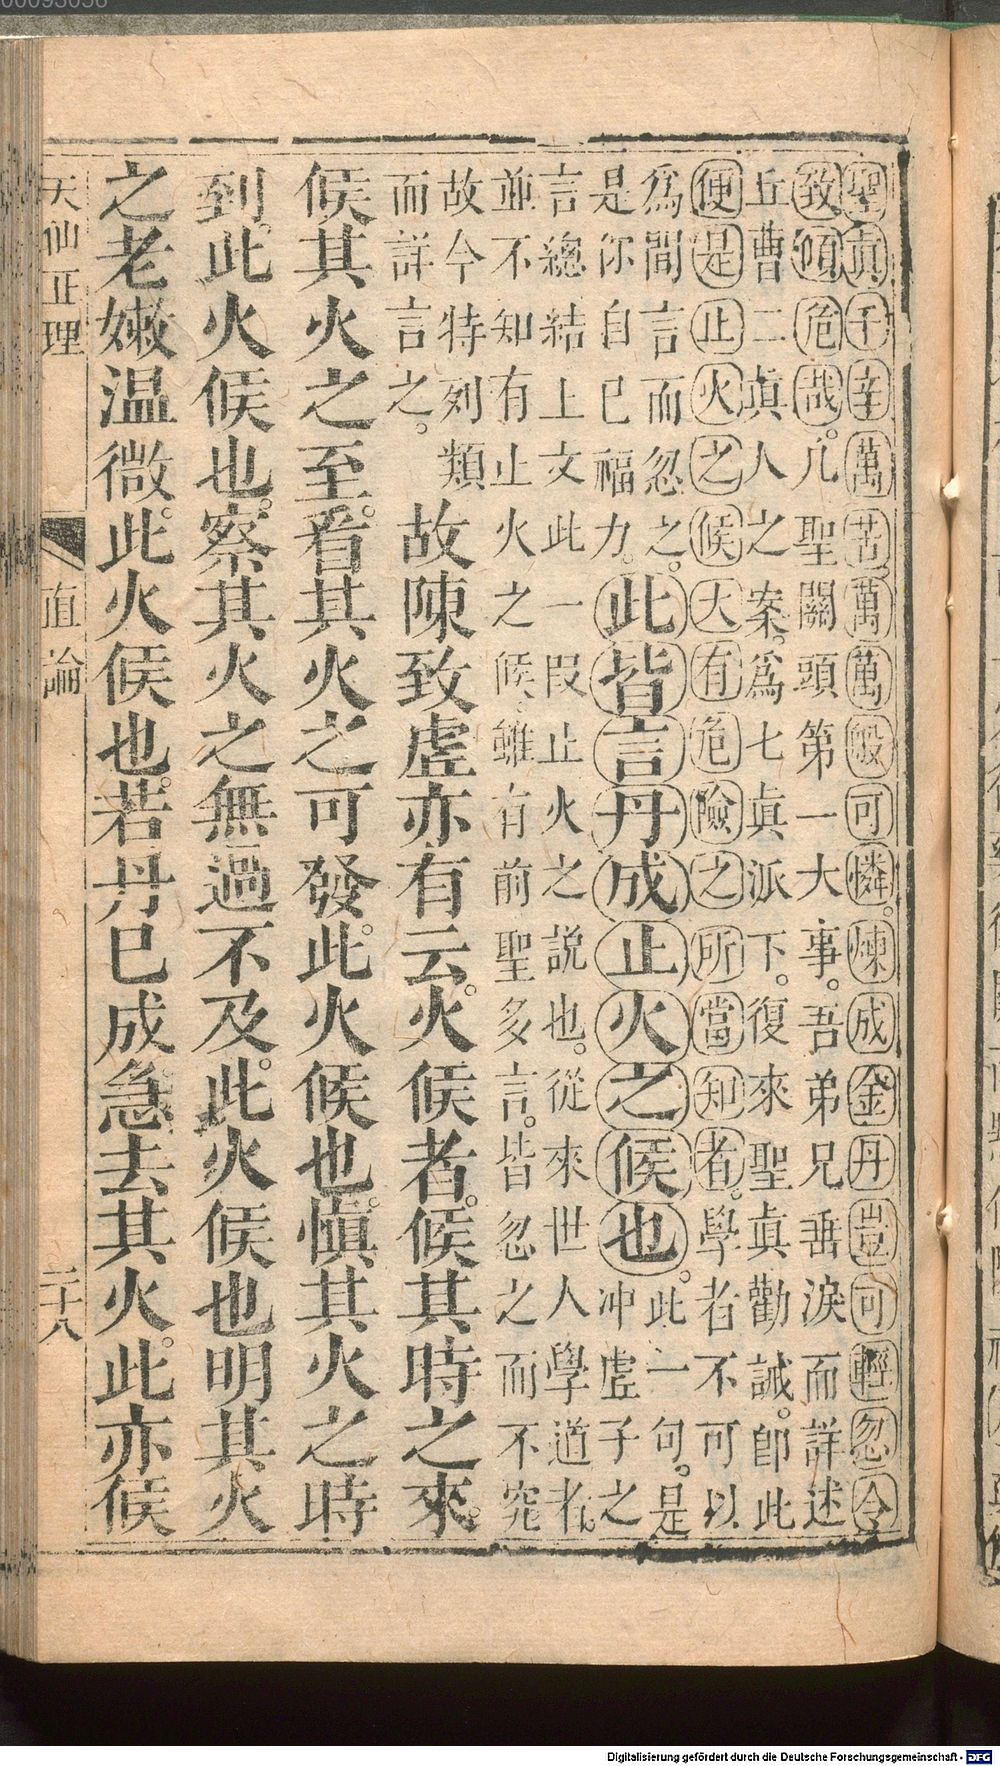 聖眞千辛萬苦萬萬般可憐。煉成金丹豈可輕忽令
致傾危哉。凡聖關頭第一大事。吾弟兄垂淚而詳述
丘曹二眞人之案。爲七眞派下。復來聖眞勸誡。卽此
便是止火之候大有危險之所當知者。學者不可以
爲閒言而忽之。
是你自已福力。
此皆言丹成止火之候也。
此一句。是
冲虛子之
言總結上文此一叚止火之說也。從來世人學道者。
並不知有止火之候、雖有前聖多言。皆忽之而不究
故今特列類
而詳言之。
故陳致虛亦有云。火候者。候其時之來。
候其火之至。看其火之可發。此火候也。愼其火之時
到。此火候也。察其火之無過不及。此火候也明其火
之老嫩温微。此火候也。若丹已成急去其火。此亦候
天仙正理
直論
二十八
00093056
Digitalisierung gefördert durch die Deutsche Forschungsgemeinschaft - DFG